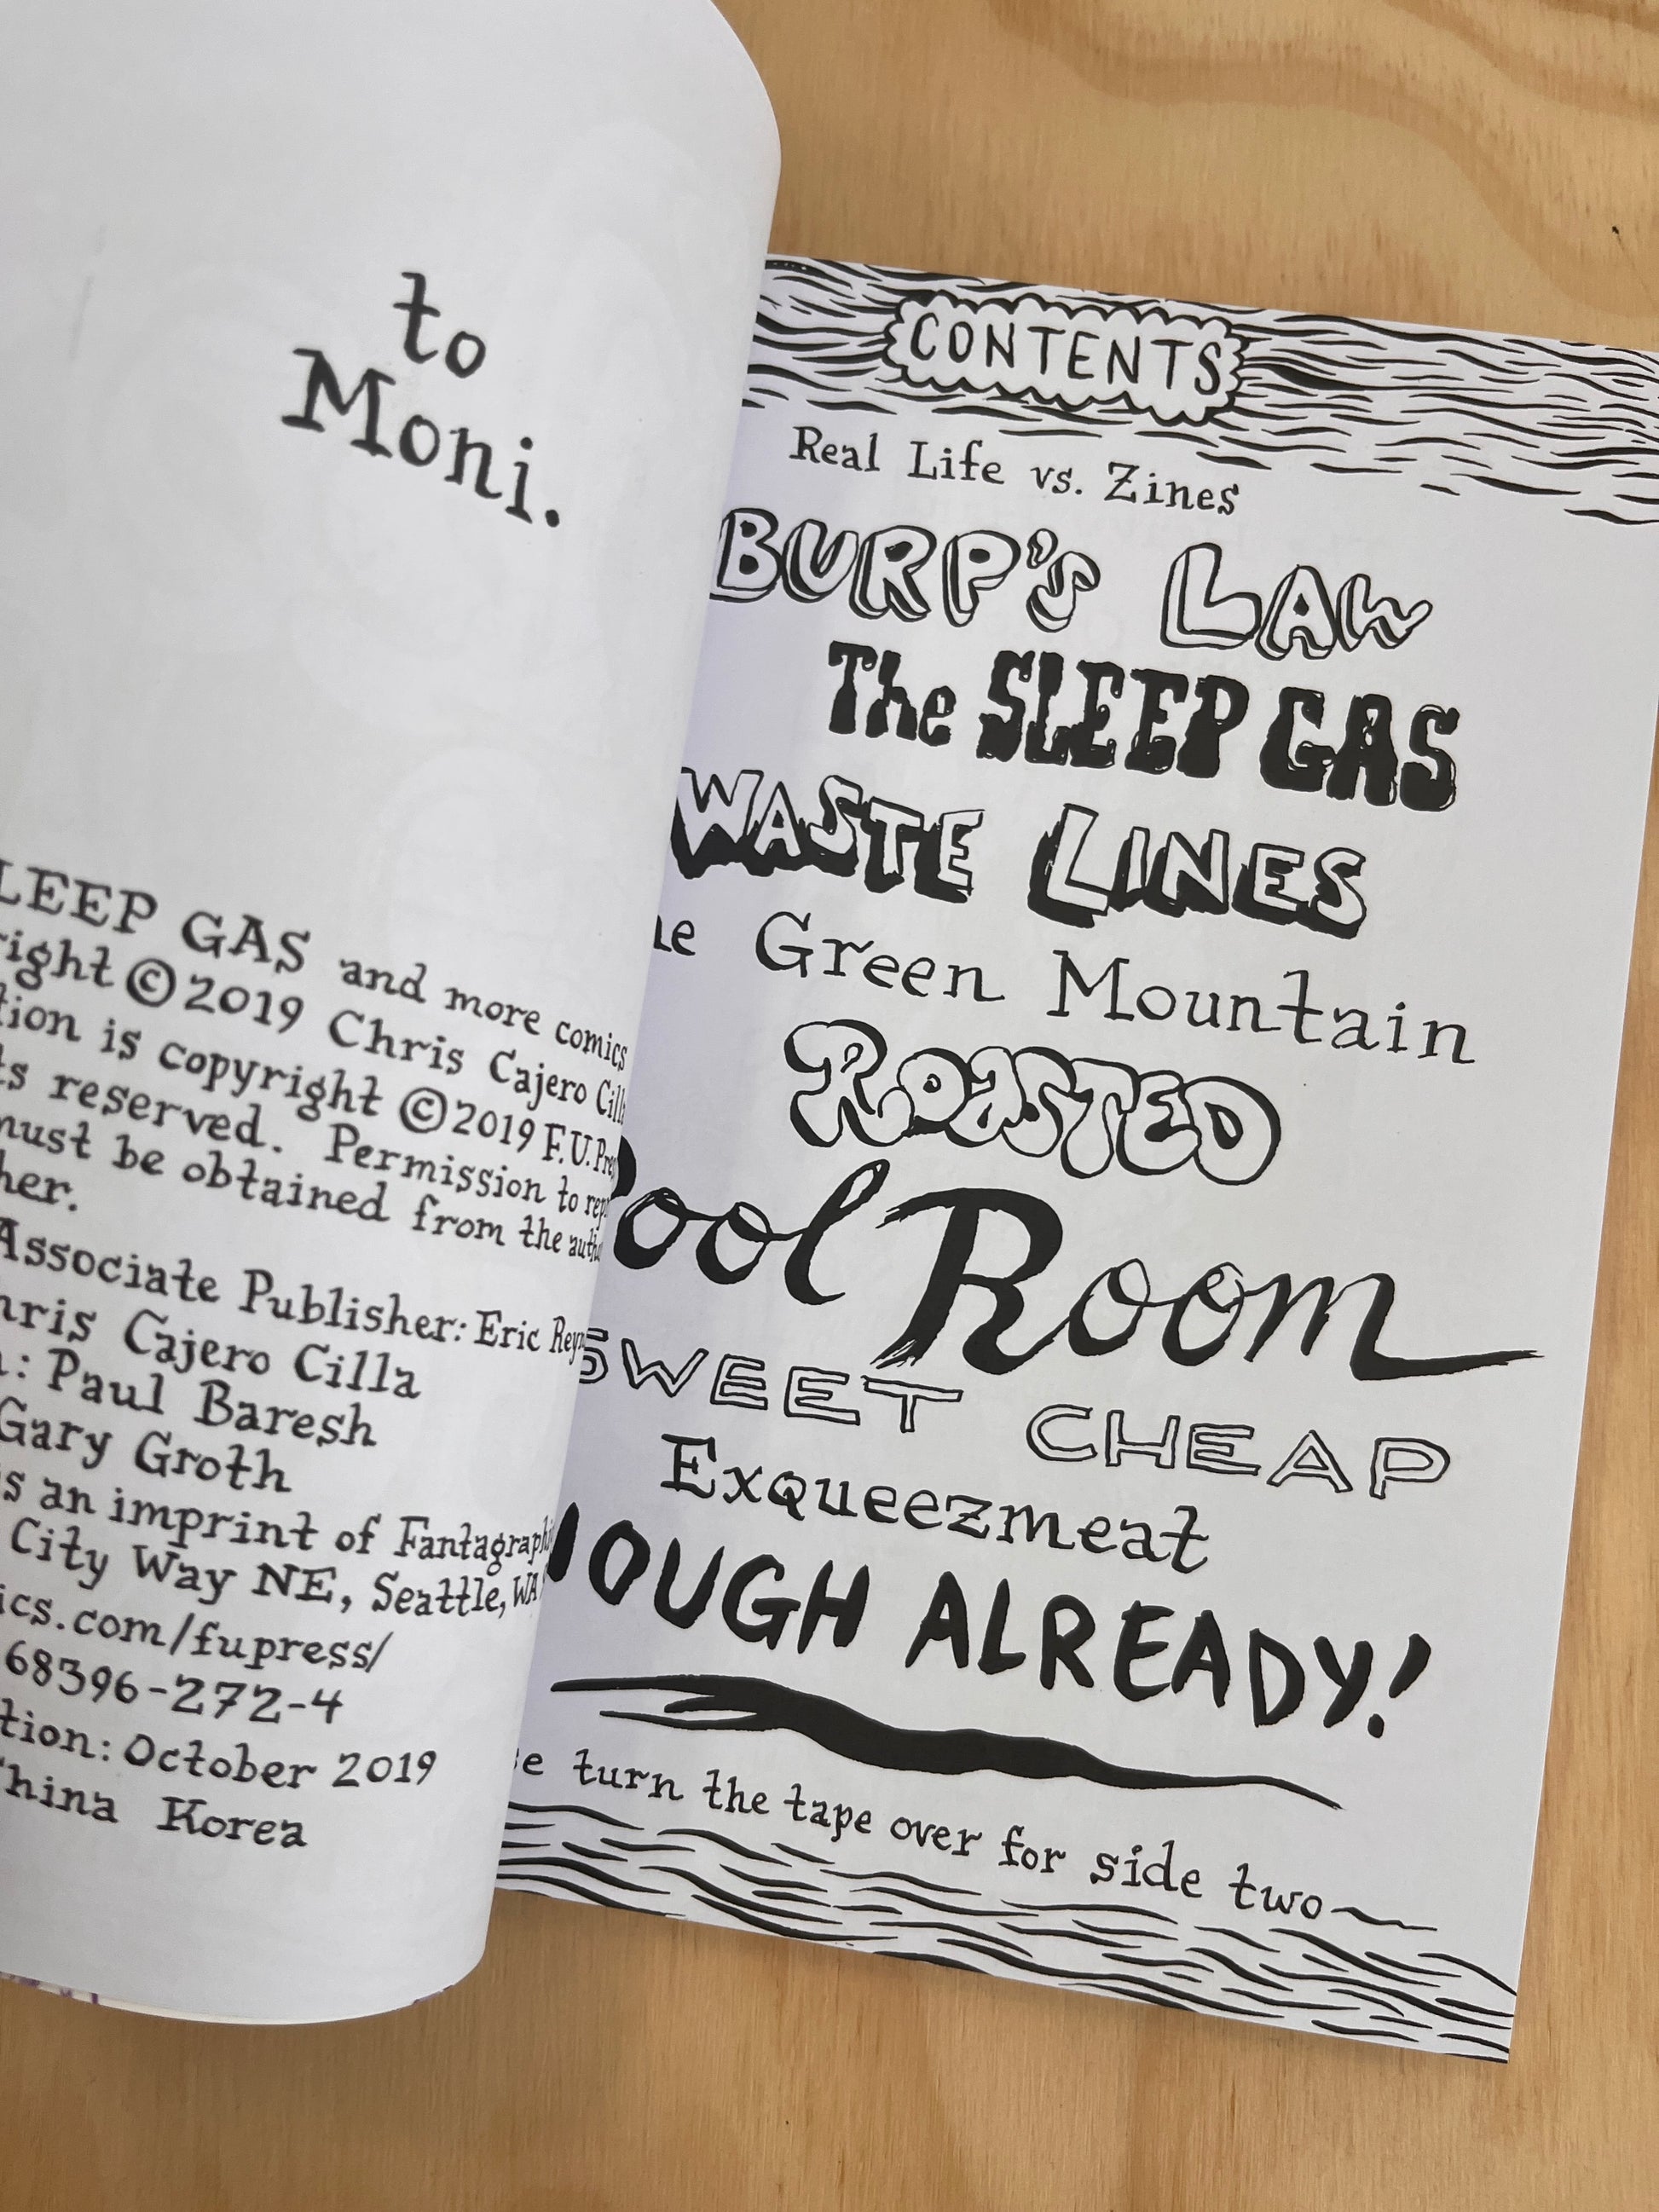 to
Moni.
LEEP GAS and more comics
right ©2019 Chris Cajero Cill
tion is copyright ©2019 F.U. Pre
ts reserved. Permission to rep
must be obtained from the auth
her.
Associate Publisher: Eric Rey
hris Cajero Cilla
: Paul Baresh
Gary Groth
s an imprint of Fantagraphi
City Way NE, Seattle, WA
ics.com/fupress/
68396-272-4
tion: October 2019
China Korea
CONTENTS
Real Life vs. Zines
BURP'S LAW
The SLEEP GAS
WASTE LINES
he Green Mountain
ROASTED
Pool Room
SWEET CHEAP
Exqueezmeat
NOUGH ALREADY!
se turn the tape over for side two~